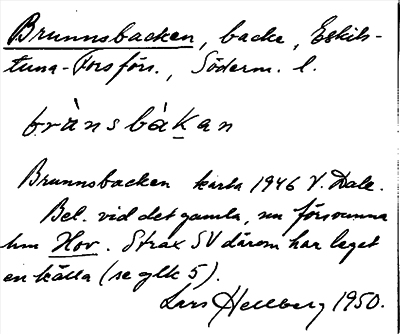 Brunnsbacken, backe, Eskils-
tuna-Fors förs., Söderm. l.
brànsbákan
Brunnsbacken karta 1946 V. Dale.
Bel. vid det gamla, nu försvunna
hm Hov. Strax SV därom har legat
en källa (se glk 5).
Lars Hellberg 1950.